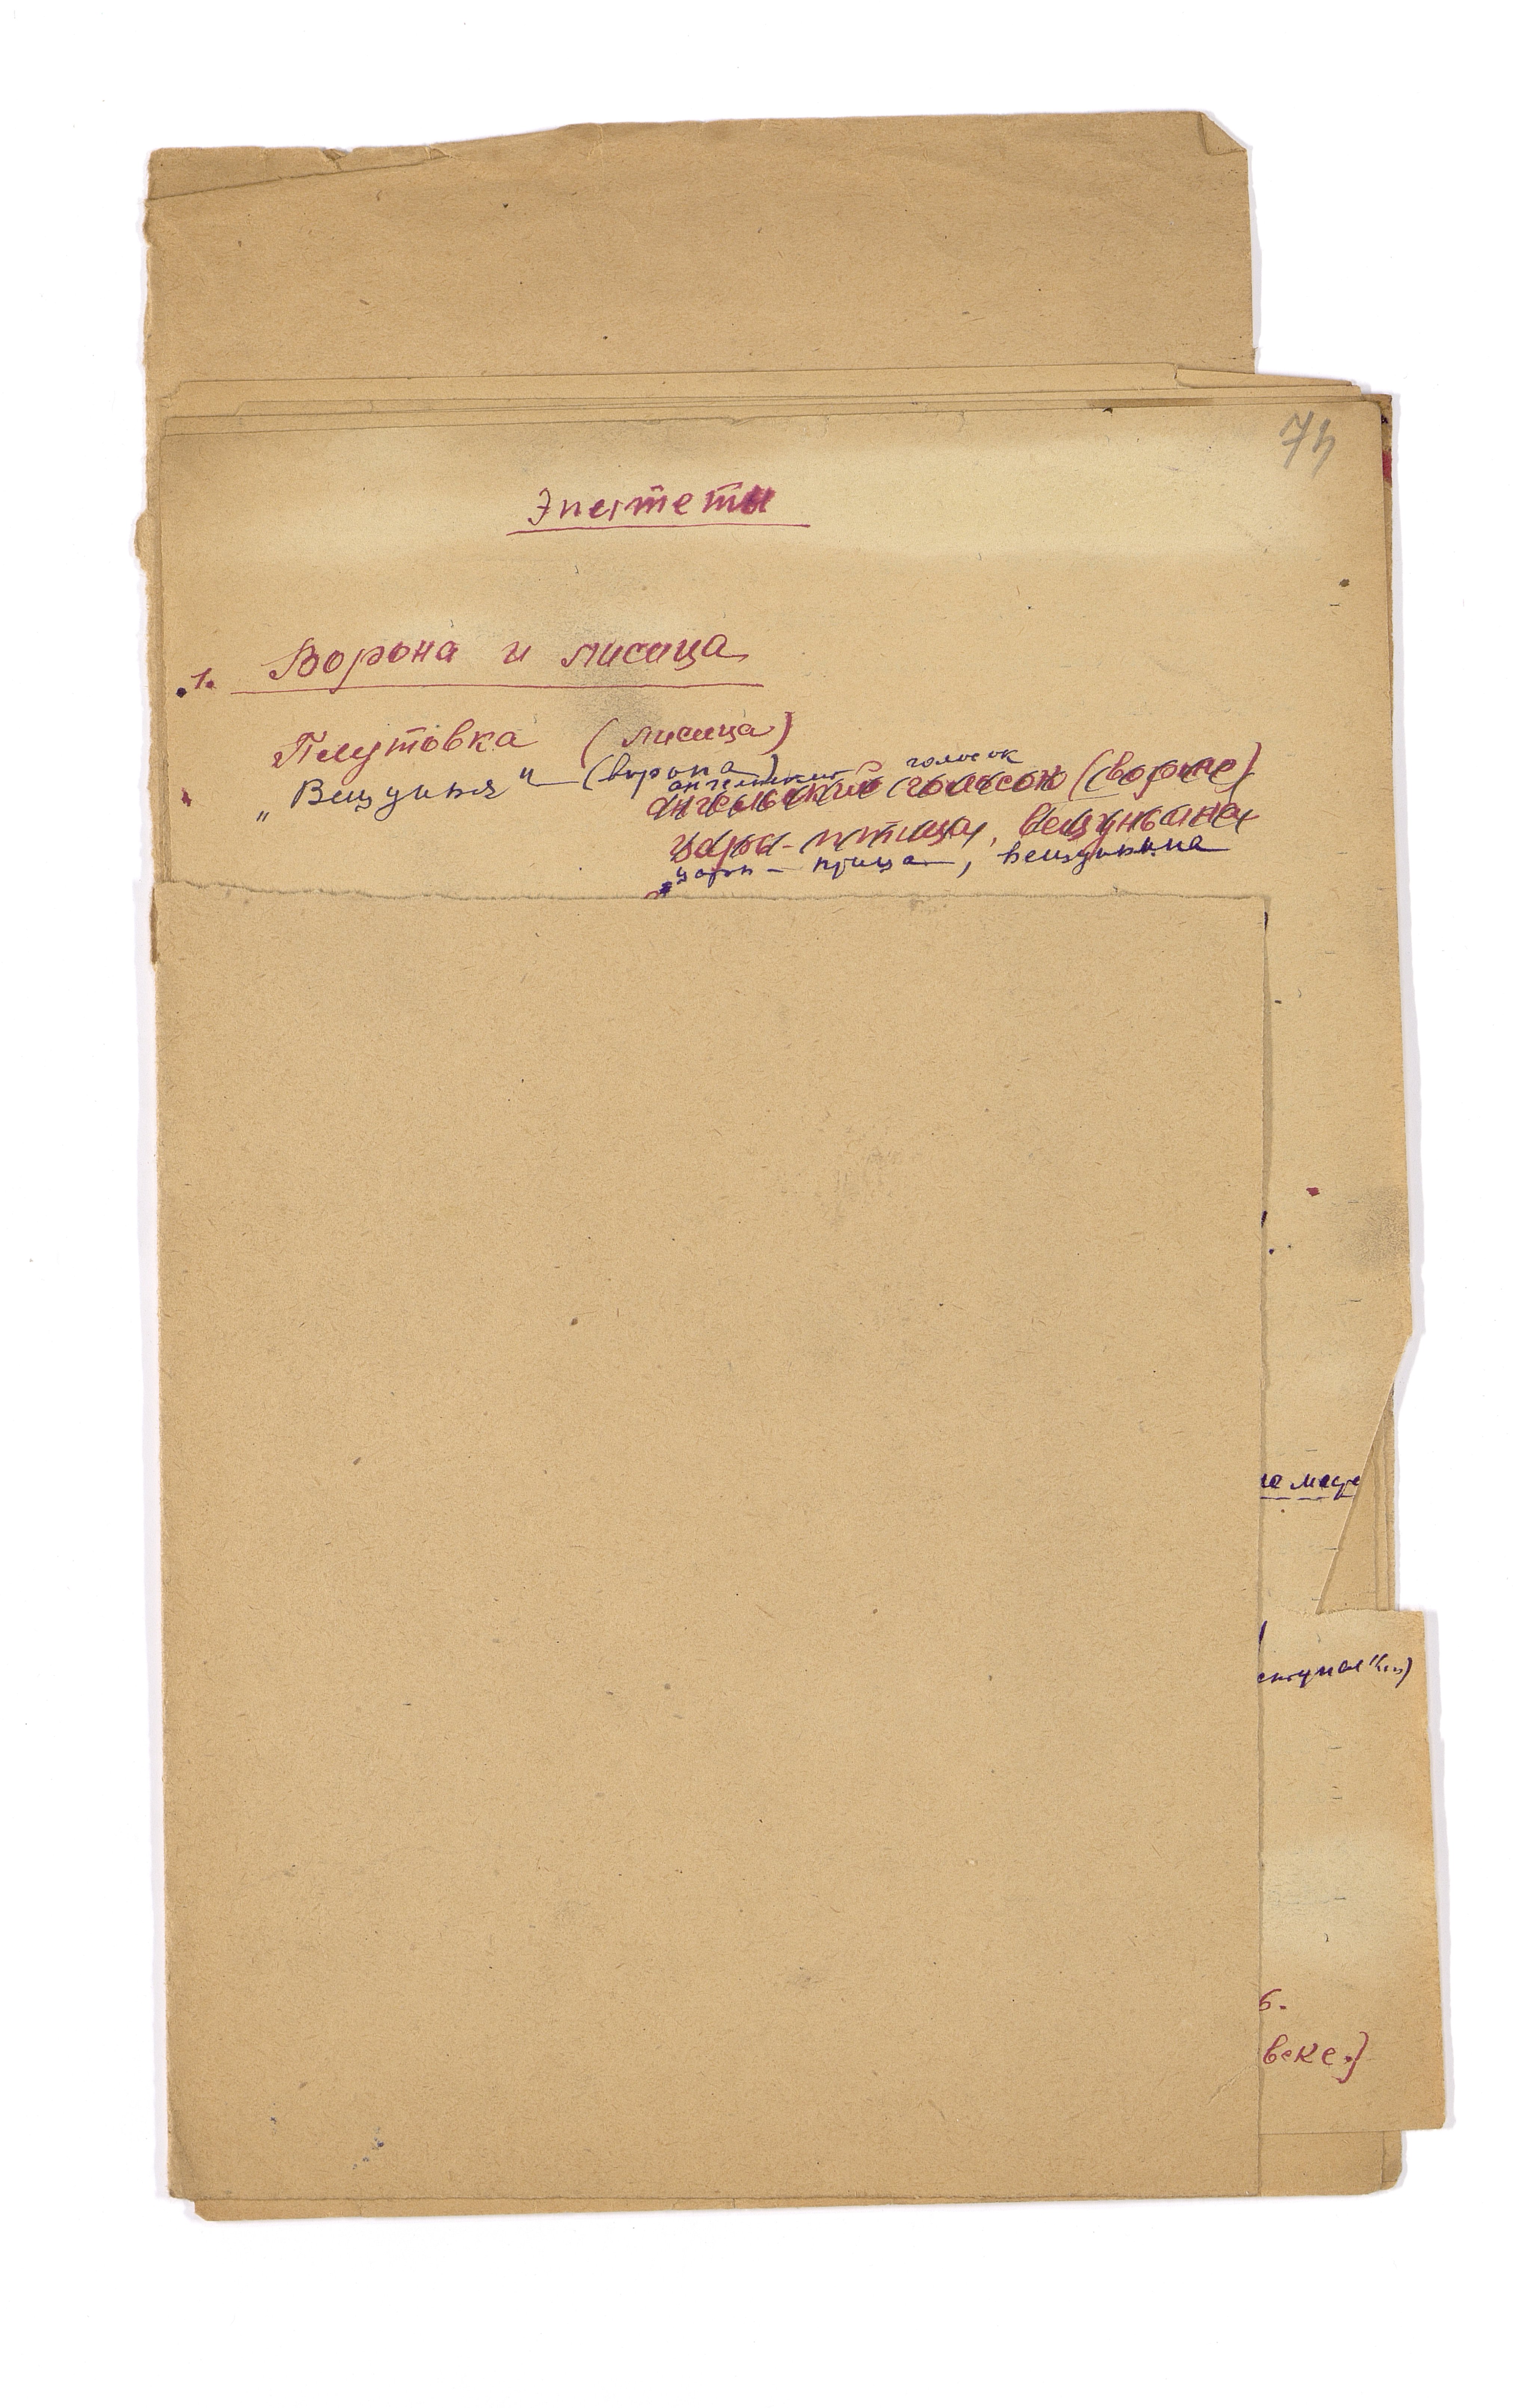 74
Эпитеты
1. Ворона и лисица
Плутовка (лисица)
„Вещунья“ — (ворона)
ангельский голосок
ангельский голосок (вороне)
царь-птица, вещуньина
царь-птица, вещуньина
6.
веке.)